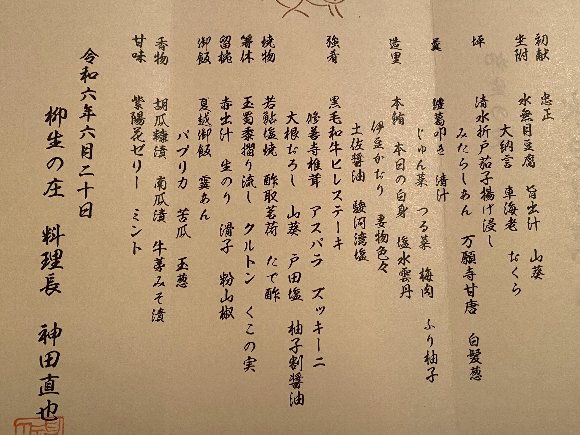 初献 忠正
坐附 水無月豆腐 旨出汁 山葵
大納言 車海老 おくら
坪 清水折戸茄子揚げ浸し
みたらしあん 万願寺甘唐 白髪葱
鱧葛叩き 清汁
じゅん菜 つる菜 梅肉 ふり柚子
造里 本鮪 本日の白身 塩水雲丹
伊豆かおり 妻物色々
土佐醤油 駿河湾塩
強肴 黒毛和牛ヒレステーキ
修善寺椎茸 アスパラ ズッキーニ
大根おろし 山葵 戸田塩 柚子割醤油
焼物 若鮎塩焼 酢取茗荷 たで酢
箸休 玉蜀黍摺り流し クルトン くこの実
留椀 赤出汁 生のり 滑子 粉山椒
御飯 夏越御飯 霙あん
パプリカ 苦瓜 玉葱
香物 胡瓜糠漬 南瓜漬 牛蒡みそ漬
甘味 紫陽花ゼリー ミント
令和六年六月二十日
柳生の庄 料理長 神田直也